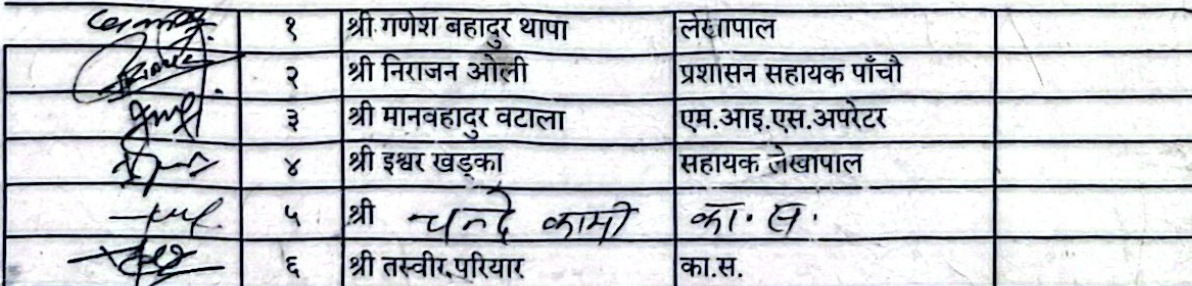 १ श्री गणेश बहादुर थापा लेखापाल
२ श्री निराजन ओली प्रशासन सहायक पाँचौ
३ श्री मानवहादुर वटाला एम.आइ.एस.अपरेटर
४ श्री इश्वर खड्का सहायक लेखापाल
५ श्री चन्दे कामी का.स.
६ श्री तस्वीर परियार का.स.